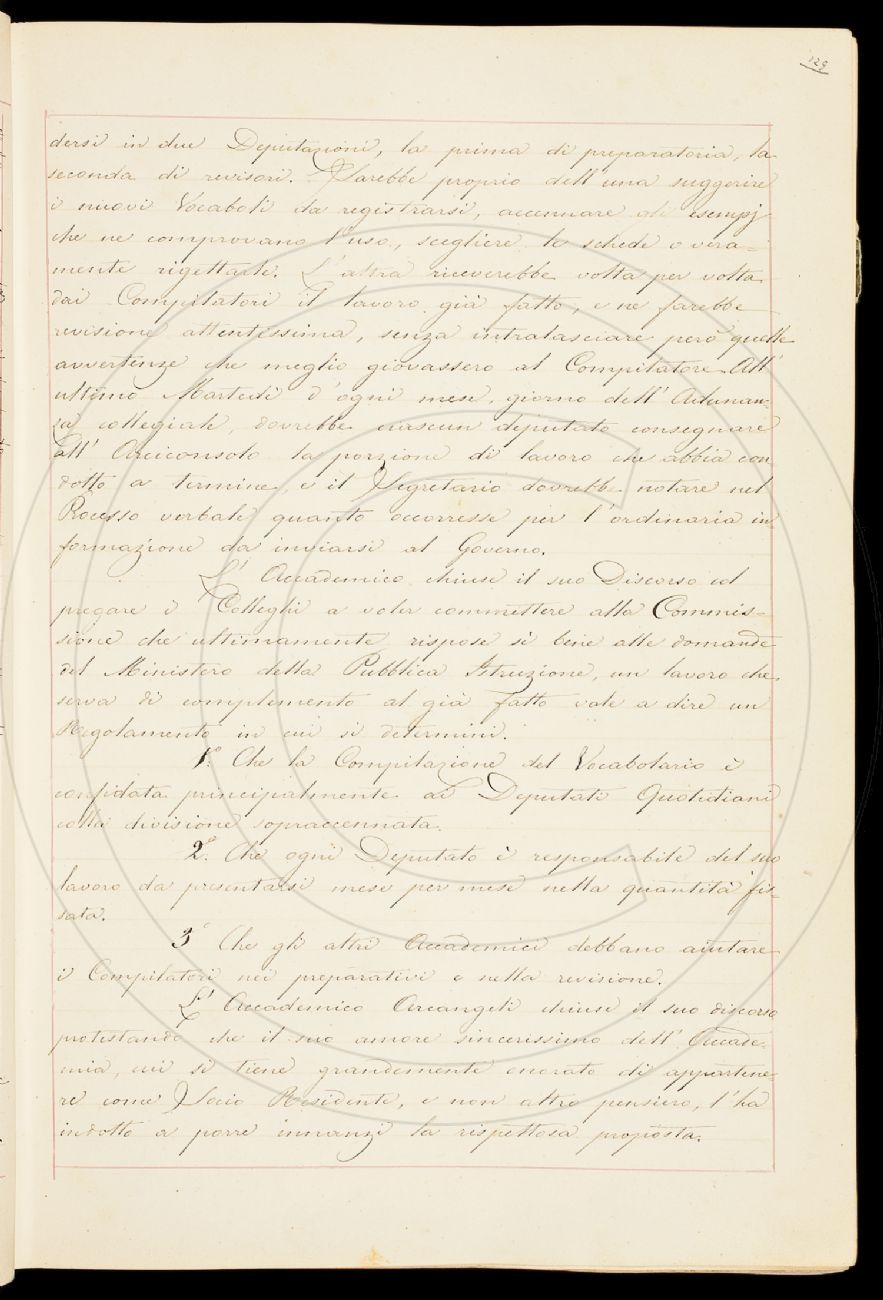 129
dersi in due Deputazioni, la prima di preparatoria, la
seconda di revisori. Sarebbe proprio dell'una suggerire
i nuovi Vocaboli da registrarsi, accennare gli esempj
che ne comprovano l'uso, scegliere le schede o vera-
mente rigettarle. L'altra riceverebbe volta per volta
dai Compilatori il lavoro già fatto, e ne farebbe
revisione attentissima, senza intralasciare però quelle
avvertenze che meglio giovassero al Compilatore. All'
ultimo Martedì d'ogni mese, giorno dell'Adunan-
za collegiale, dovrebbe ciascun deputato consegnare
all'Arciconsolo la porzione di lavoro che abbia con
dotto a termine, e il Segretario dovrebbe notare nel
Processo verbale quanto occorresse per l'ordinaria in
formazione da inviarsi al Governo.
L'Accademico chiuse il suo Discorso col
pregare i Colleghi a voler commettere alla Commis-
sione che ultimamente rispose sì bene alle domande
del Ministero della Pubblica Istruzione, un lavoro che
serva di complemento al già fatto vale a dire un
Regolamento in cui si determini.
1º. Che la Compilazione del Vocabolario è
confidata principalmente ai Deputati Quotidiani
colla divisione sopraccennata.
2º. Che ogni Deputato è responsabile del suo
lavoro da presentarsi mese per mese nella quantità fis-
sata.
3º Che gli altri Accademici debbano aiutare
i Compilatori nei preparativi e nella revisione.
L'Accademico Arcangeli chiuse il suo discorso
protestando che il suo amore sincerissimo dell'Accade-
mia, cui si tiene grandemente onorato di appartene-
re come Socio Residente, e non altro pensiero, l'ha
indotto a porre innanzi la rispettosa proposta.